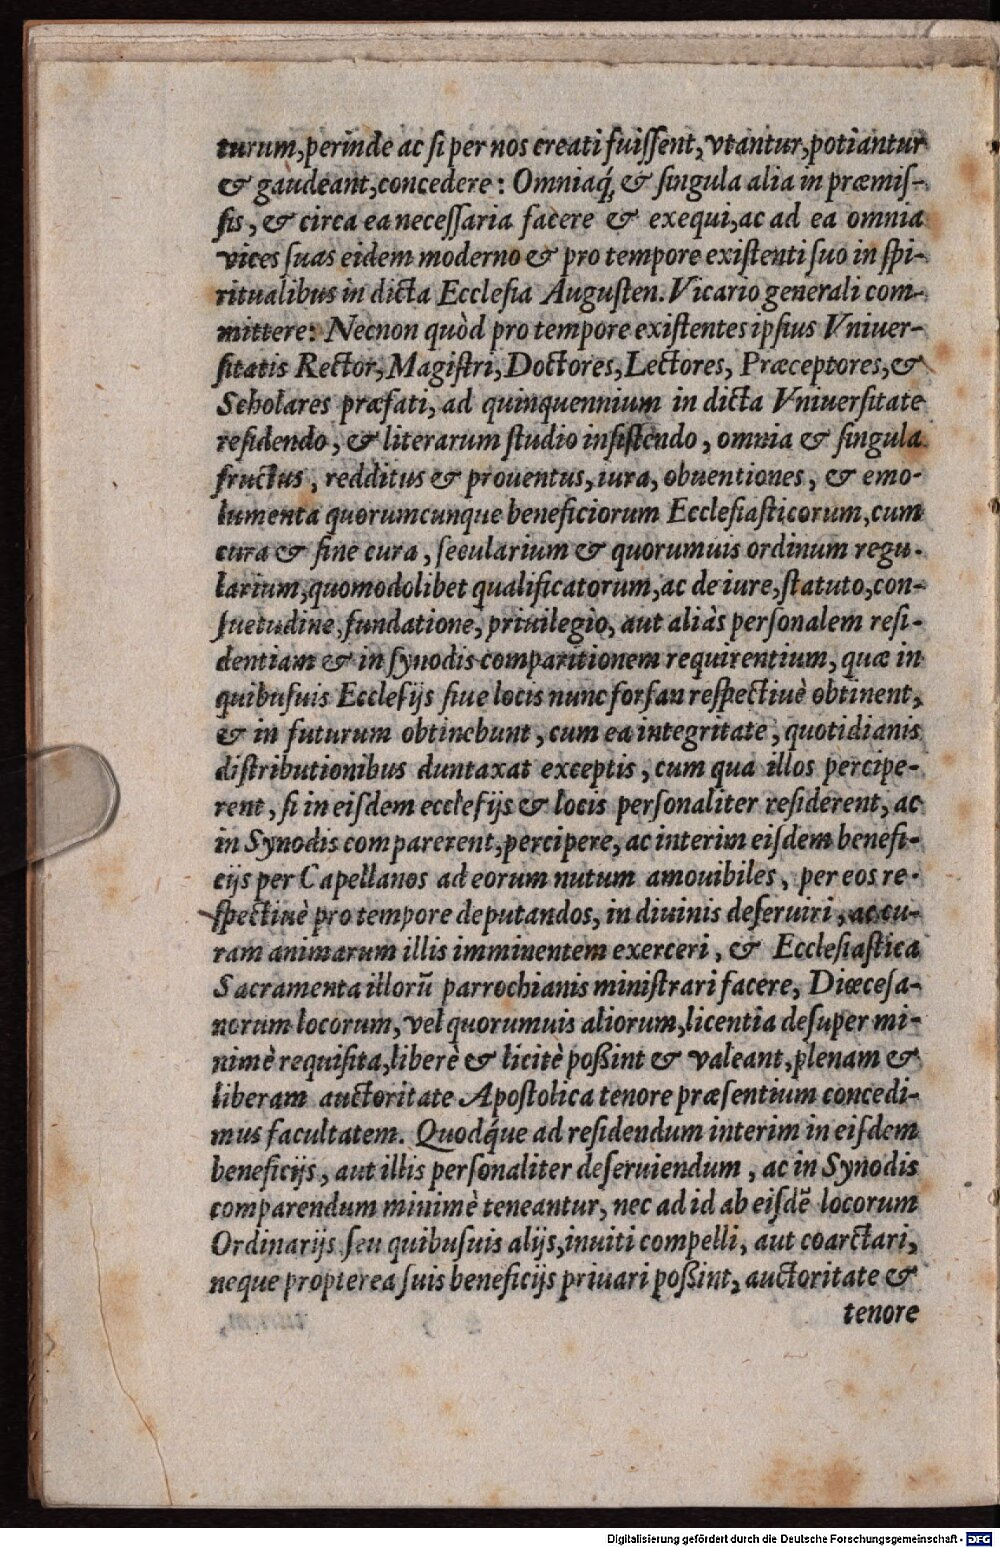 turum, perinde ac ſi per nos creati fuiſſent, vtantur, potiantur
& gaudeant, concedere: Omniaq́; & ſingula alia in præmiſ-
ſis, & circa ea neceſſaria facere & exequi, ac ad ea omnia
vices ſuas eidem moderno & pro tempore exiſtenti ſuo in ſpi-
ritualibus in dicta Eccleſia Auguſten. Vicario generali com-
mittere: Necnon quòd pro tempore exiſtentes ipſius Vniuer-
ſitatis Rector, Magiſtri, Doctores, Lectores, Præceptores, &
Scholares præfati, ad quinquennium in dicta Vniuerſitate
reſidendo, & literarum ſtudio inſiſtendo, omnia & ſingula
fructus, redditus & prouentus, iura, obuentiones, & emo-
lumenta quorumcunque beneficiorum Eccleſiaſticorum, cum
cura & ſine cura, ſecularium & quorumuis ordinum regu-
larium, quomodolibet qualificatorum, ac de iure, ſtatuto, con-
ſuetudine, fundatione, priuilegio, aut aliàs perſonalem reſi-
dentiam & in ſynodis comparitionem requirentium, quæ in
quibuſuis Eccleſijs ſiue locis nunc forſan reſpectiuè obtinent,
& in futurum obtinebunt, cum ea integritate, quotidianis
diſtributionibus duntaxat exceptis, cum qua illos percipe-
rent, ſi in eiſdem eccleſijs & locis perſonaliter reſiderent, ac
in Synodis comparerent, percipere, ac interim eiſdem benefi-
cijs per Capellanos ad eorum nutum amouibiles, per eos re-
ſpectiuè pro tempore deputandos, in diuinis deſeruiri, ac cu-
ram animarum illis imminentem exerceri, & Eccleſiaſtica
Sacramenta illorū parrochianis miniſtrari facere, Diœceſa-
norum locorum, vel quorumuis aliorum, licentia deſuper mi-
nimè requiſita, liberè & licitè poßint & valeant, plenam &
liberam auctoritate Apoſtolica tenore præſentium concedi-
mus facultatem. Quodq́ue ad reſidendum interim in eiſdem
beneficijs, aut illis perſonaliter deſeruiendum, ac in Synodis
comparendum minimè teneantur, nec ad id ab eiſdē locorum
Ordinarijs ſeu quibuſuis alijs, inuiti compelli, aut coarctari,
neque propterea ſuis beneficijs priuari poßint, auctoritate &
tenore
Digitalisierung gefördert durch die Deutsche Forschungsgemeinschaft - DFG